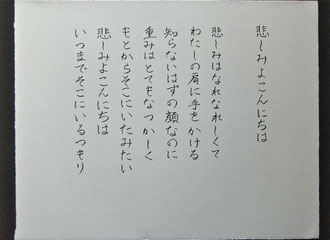 悲しみよこんにちは
悲しみはなれなれしくて
わたしの肩に手をかける
知らないはずの顔なのに
重みはとてもなつかしく
もとからそこにいたみたい
悲しみよこんにちは
いつまでそこにいるつもり